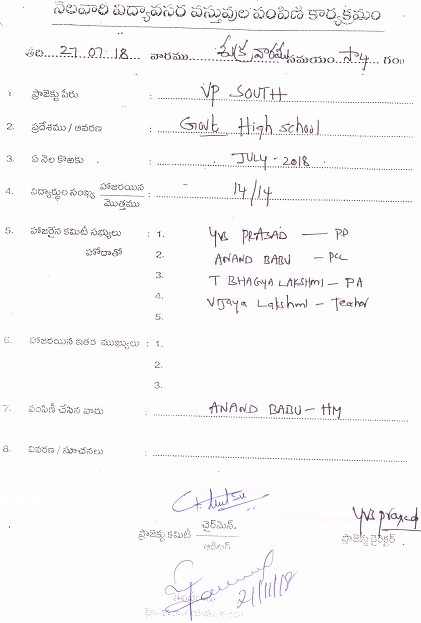 నెలవారి విద్యావసర వస్తువుల పంపిణి కార్యక్రమం
తేది. 27.07.18 వారము శుక్రవారము సమయం. సా4 గం॥
1. ప్రాజెక్టు పేరు : VP SOUTH
2. ప్రదేశము / ఆవరణ : Govt. High school
3. ఏ నెల కొఱకు : JULY - 2018
4. విద్యార్థుల సంఖ్య హాజరయిన / మొత్తము : 14/14
5. హాజరైన కమిటీ సభ్యులు : 1. YVB PRASAD — PD
హోదాతో 2. ANAND BABU - PCC
3. T BHAGYA LAKSHMI - PA
4. Vijaya Lakshmi - Teacher
5.
6. హాజరయిన ఇతర ముఖ్యులు : 1.
2.
3.
7. పంపిణీ చేసిన వారు : ANAND BABU - HM
8. వివరణ / సూచనలు :
ప్రాజెక్టు కమిటీ ఛైర్మెన్
YVB prasad
ప్రాజెక్టు డైరెక్టర్
21/11/18